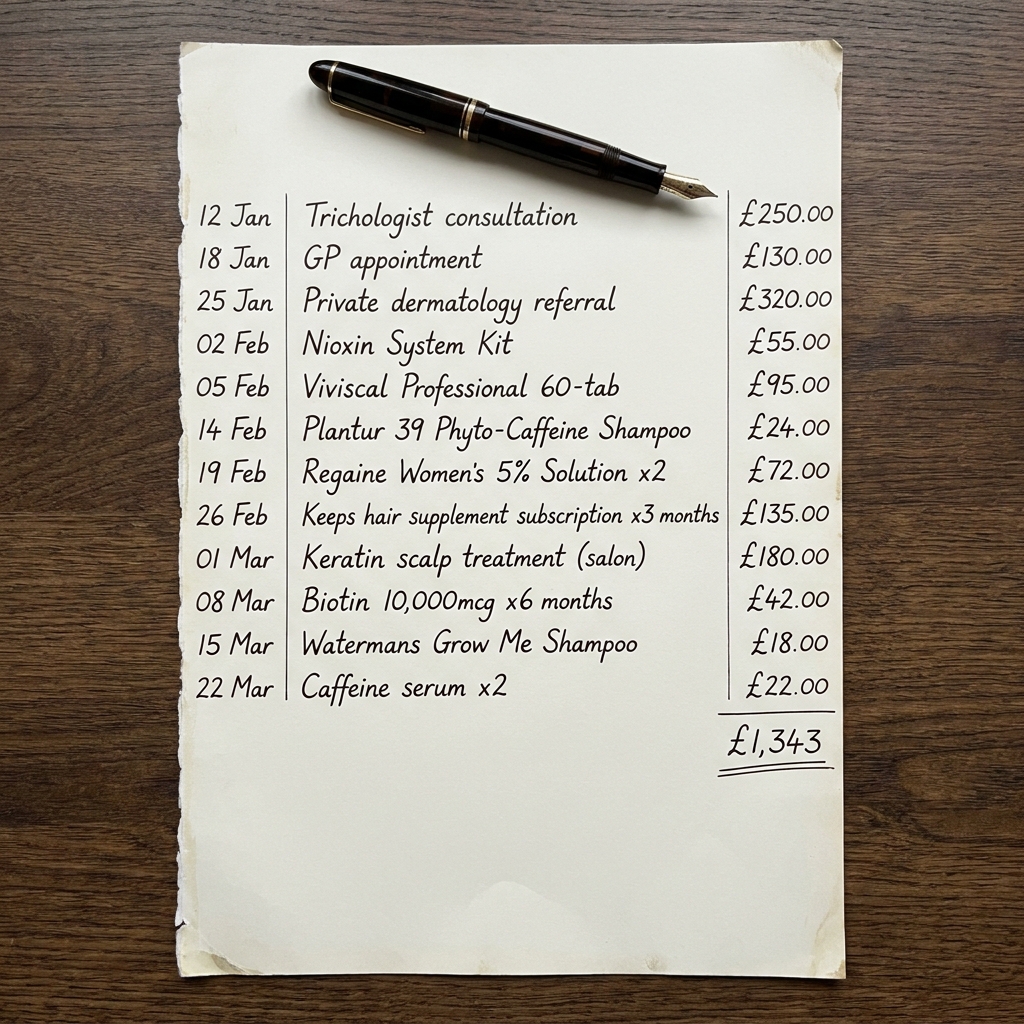 12 Jan Trichologist consultation £250.00
18 Jan GP appointment £130.00
25 Jan Private dermatology referral £320.00
02 Feb Nioxin System Kit £55.00
05 Feb Viviscal Professional 60-tab £95.00
14 Feb Plantur 39 Phyto-Caffeine Shampoo £24.00
19 Feb Regaine Women's 5% Solution x2 £72.00
26 Feb Keeps hair supplement subscription x3 months £135.00
01 Mar Keratin scalp treatment (salon) £180.00
08 Mar Biotin 10,000mcg x6 months £42.00
15 Mar Watermans Grow Me Shampoo £18.00
22 Mar Caffeine serum x2 £22.00
£1,343